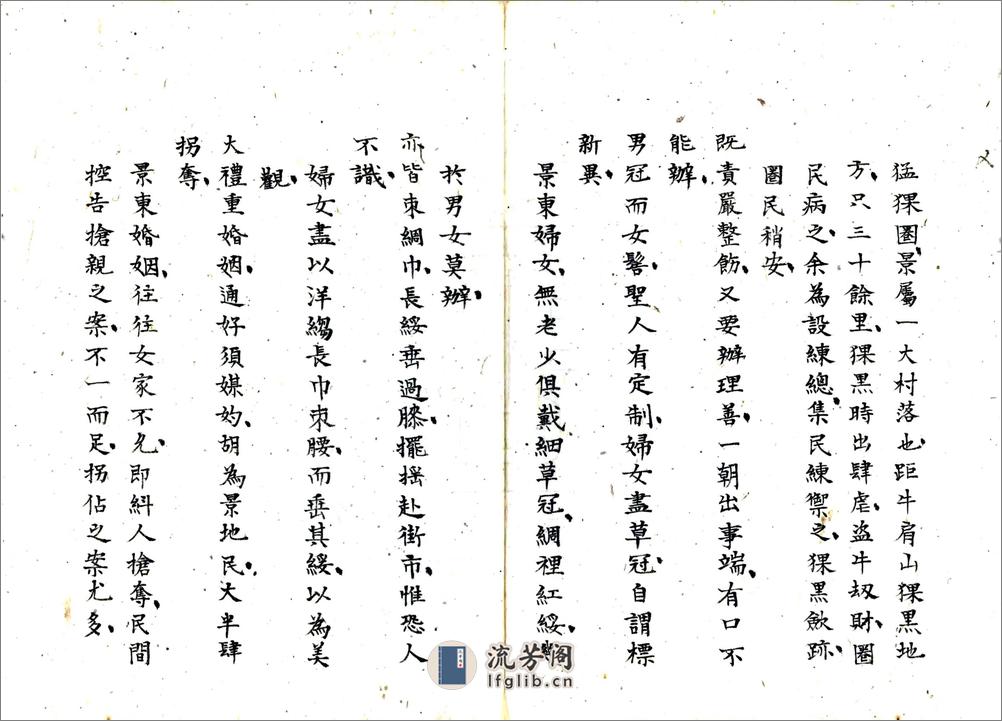 猛猓圈、景屬一大村落也、距牛肩山猓黑地
方、只三十餘里、猓黑時出肆虐、盜牛刼財、圈
民病之、余為設練總、集民練禦之、猓黑歛跡、
圈民稍安、
既責嚴整飭、又要辦理善、一朝出事端、有口不
能辦、
男冠而女髻、聖人有定制、婦女盡草冠、自謂標
新異、
景東婦女、無老少俱戴細草冠、綢裡紅綏、
於男女莫辦、
亦皆束綢巾、長綏垂過膝、擺搖赴街市、惟恐人
不識、
婦女盡以洋縐長巾束腰、而垂其綏、以為美
觀、
大禮重婚姻、通好須媒妁、胡為景地民、大半肆
拐奪、
景東婚姻、往往女家不允、即糾人搶奪、民間
控告搶親之案、不一而足、拐佔之案尤多、
流芳閣
lfglib.cn